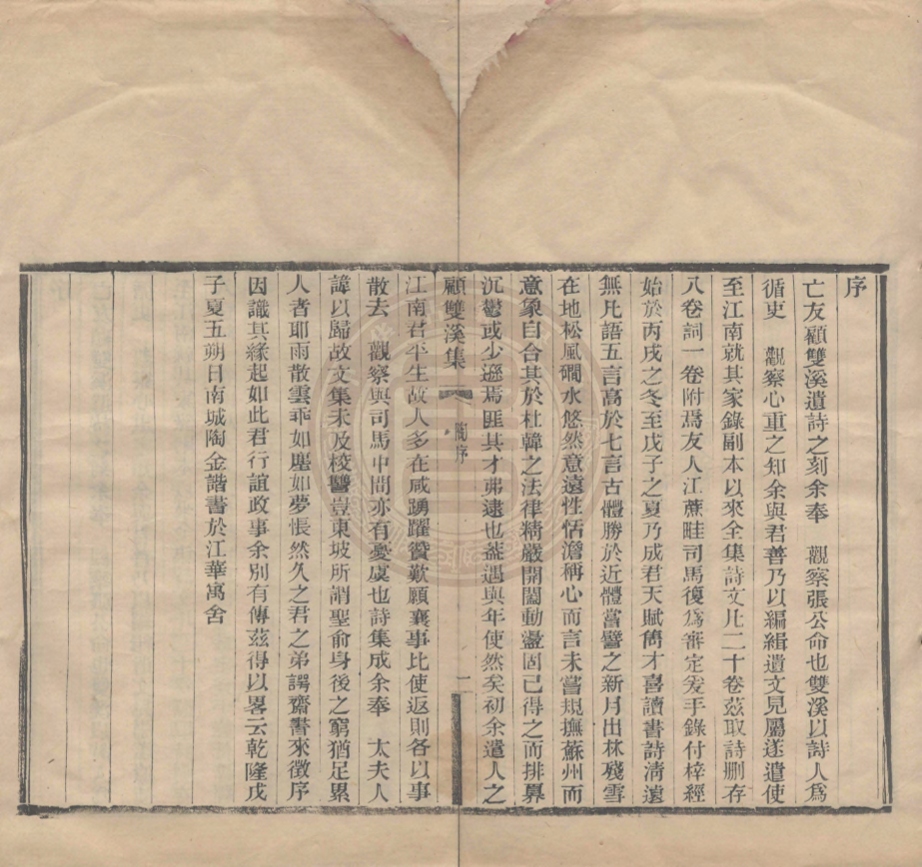 序
亡友顧雙溪遺詩之刻余奉　觀察張公命也雙溪以詩人爲
循吏　觀察心重之知余與君善乃以編緝遺文見屬遂遣使
至江南就其家錄副本以來全集詩文凡二十卷茲取詩删存
八卷詞一卷附焉友人江蔗畦司馬復爲審定爰手錄付梓經
始於丙戌之冬至戊子之夏乃成君天賦雋才喜讀書詩淸遠
無凡語五言高於七言古體勝於近體當譬之新月出林殘雪
在地松風磵水悠然意遠性恬澹稱心而言未嘗規撫蘇州而
意象自合其於杜韓之法律精嚴開闔動盪固已得之而排奡
沉鬱或少遜焉匪其才弗逮也葢遇與年使然矣初余遣人之
顧雙溪集　陶序　二
江南君平生故人多在咸踴躍贊歎願襄事比使返則各以事
散去　觀察與司馬中間亦有憂虞也詩集成余奉　太夫人
諱以歸故文集未及校讐豈東坡所謂聖俞身後之窮猶足累
人者耶雨散雲乖如塵如夢悵然久之君之弟諤齋書來徵序
因識其緣起如此君行誼政事余別有傳茲得以畧云乾隆戊
子夏五朔日南城陶金諧書於江華寓舍